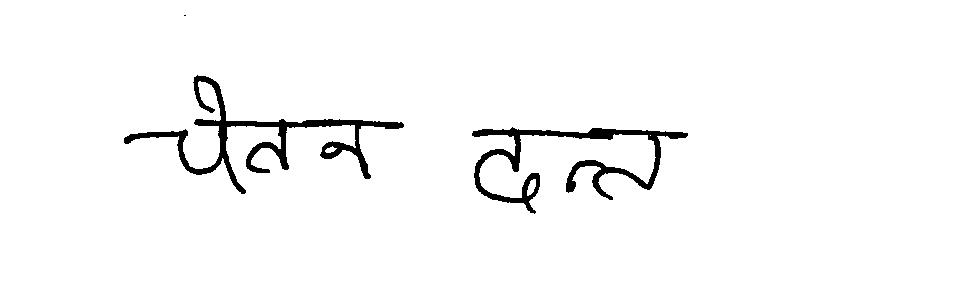 चेतन दन्त